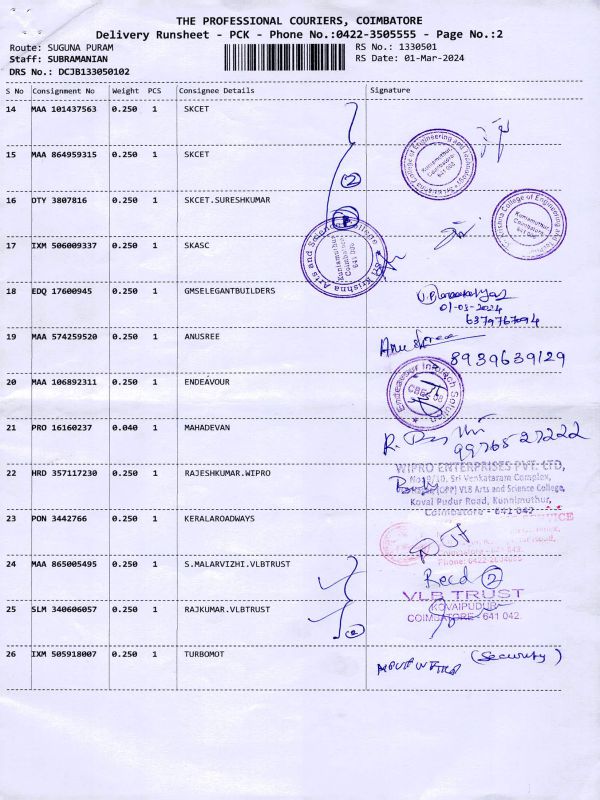 THE PROFESSIONAL COURIERS, COIMBATORE
Delivery Runsheet - PCK - Phone No.:0422-3505555 - Page No.:2
Route: SUGUNA PURAM RS No.: 1330501
Staff: SUBRAMANIAN RS Date: 01-Mar-2024
DRS No.: DCJB133050102
S No Consignment No Weight PCS Consignee Details Signature
14 MAA 101437563 0.250 1 SKCET
15 MAA 864959315 0.250 1 SKCET
Sri Krishna College of Engineering and Technology
Kuniamuthur, Coimbatore 641 008
2
16 DTY 3807816 0.250 1 SKCET.SURESHKUMAR
Krishna College of Engineering
Kuniamuthur Coimbatore
17 IXM 506009337 0.250 1 SKASC
Sri Krishna Arts and Science College
Kuniamuthur Coimbatore 641 008
18 EDQ 17600945 0.250 1 GMSELEGANTBUILDERS
01-03-2024
6379767094
19 MAA 574259520 0.250 1 ANUSREE
Anusree
8939639129
20 MAA 106892311 0.250 1 ENDEAVOUR
Endeavour Infotech Solution
21 PRO 16160237 0.040 1 MAHADEVAN
9976527222
22 HRD 357117230 0.250 1 RAJESHKUMAR.WIPRO
WIPRO ENTERPRISES PVT. LTD,
Sri Venkataram Complex,
VLB Arts and Science College,
Kovai Pudur Road, Kunnimuthur,
Coimbatore - 641 042
23 PON 3442766 0.250 1 KERALAROADWAYS
SERVICE
24 MAA 865005495 0.250 1 S.MALARVIZHI.VLBTRUST
Recd 2
VLB TRUST
KOVAIPUDUR
COIMBATORE - 641 042.
25 SLM 340606057 0.250 1 RAJKUMAR.VLBTRUST
2
26 IXM 505918007 0.250 1 TURBOMOT
(Security)